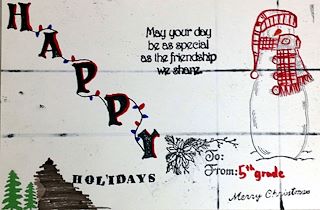 HAPPY
HOLIDAYS
May your day
be as special
as the friendship
we share.
To:
From: 5th grade
Merry Christmas